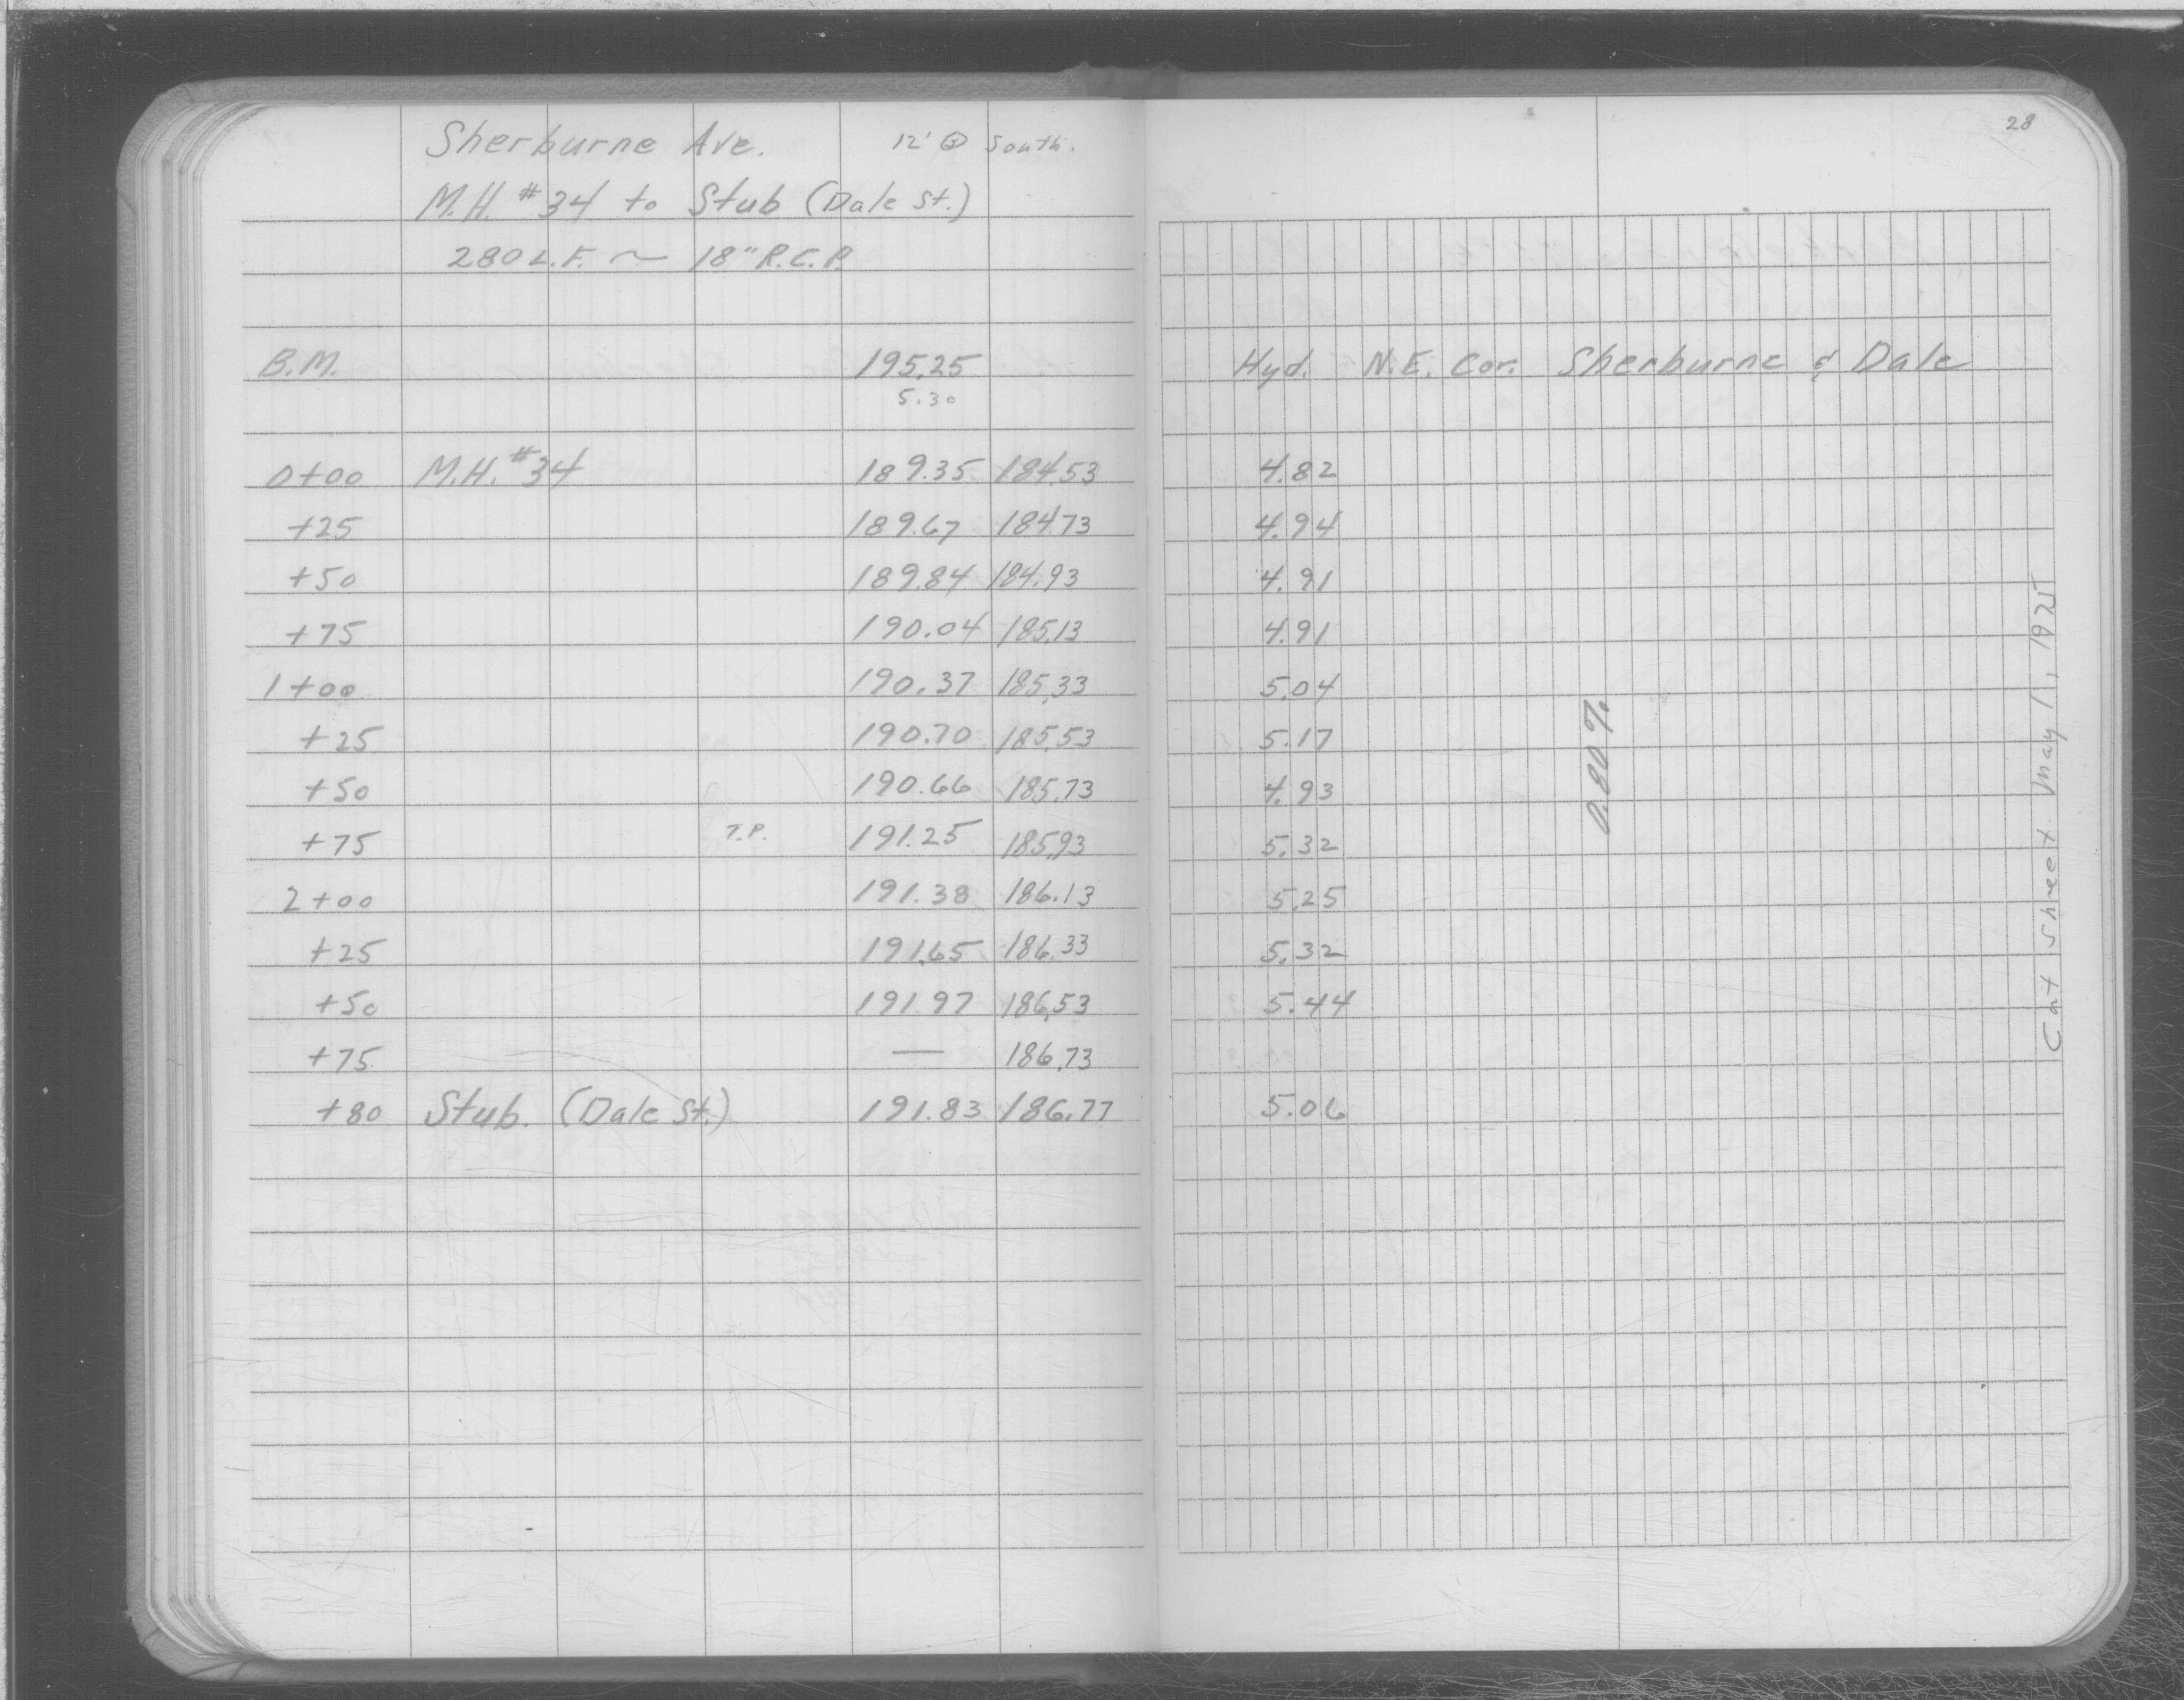 28
Sherburne Ave. 12' @ South.
M.H. #34 to Stub (Dale St.)
280 L.F. ~ 18" R.C.P.
B.M. 195.25 Hyd. N.E. Cor. Sherburne & Dale
5.30
0+00 M.H. #34 189.35 184.53 4.82
+25 189.67 184.73 4.94
+50 189.84 184.93 4.91
+75 190.04 185.13 4.91
1+00 190.37 185.33 5.04
+25 190.70 185.53 5.17
+50 190.66 185.73 4.93
+75 T.P. 191.25 185.93 5.32
2+00 191.38 186.13 5.25
+25 191.65 186.33 5.32
+50 191.97 186.53 5.44
+75 — 186.73
+80 Stub. (Dale St.) 191.83 186.77 5.06
0.80%
Cut sheet May 11, 1925